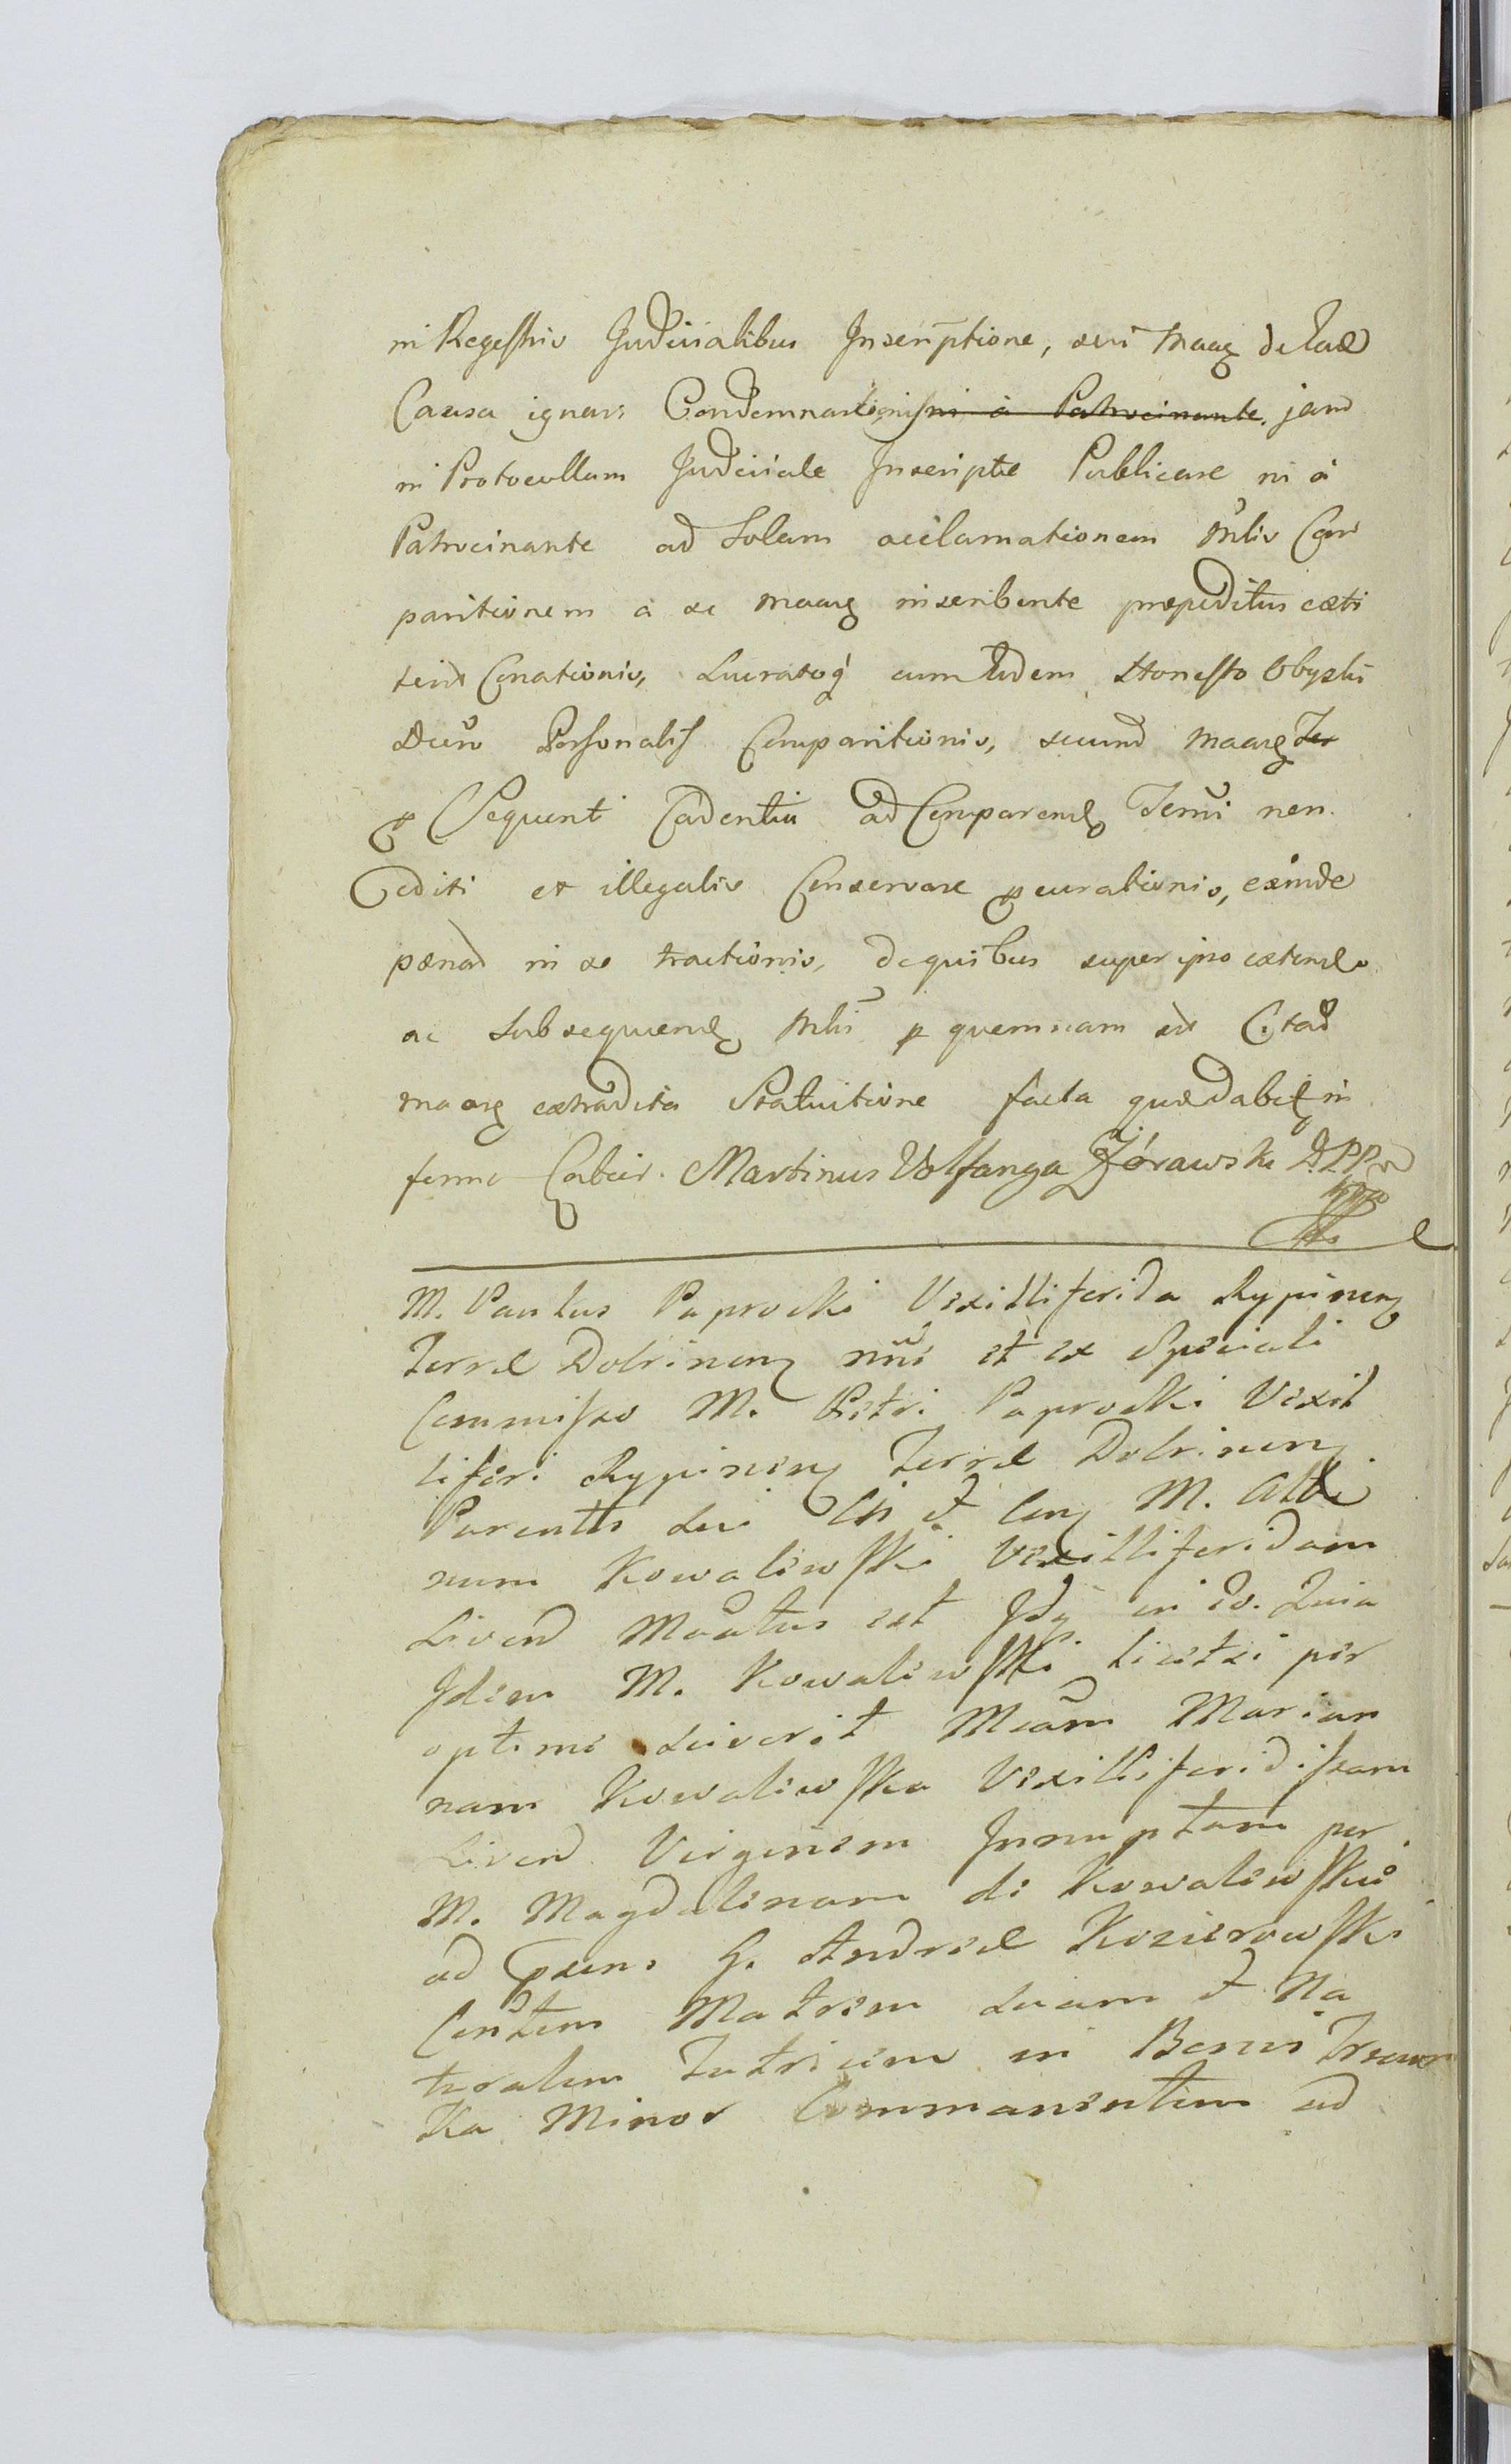 in Regestris Judicialibus Inscriptione, sui Maag delae
Causa ignari Condemnationis in à Patrocinante jam
in Protocollum Judiciale Inscriptae Publicare ni à
Patrocinante ad Solam acclamationem Mlis Com
paritionem à se Maag inscribente praepeditus
Conationis, cum eodem Honesto
Personalis Comparitionis, secund Maag Ter
Sequent Cadentia ad Comparend Termi non
editi et illegalis Conservare curationis, exinde
paenas in se tractionis, de quibus super ipso extend
ac Subsequend Mlis p quemnam ad Citad
Maag extradita Statuitione facta quaedabit in
forma Martinus Volfanga Żórawski
M. Paulus Paprocki Vexilliferida Rypinen
Terrae Dobrinen nnē et ex Speciali
Commisso M. Petri Paprocki Vexil
liferi Rypinen Terrae Dobrinen
Parentis sui M.
num Kowaliewski Vexilliferidam
Livend Moatus est Idq in eo. Quia
Idem M. Kowaliewski licet sei per
optime sciverit Mcam Marian
nam Kowaliewska Vexilliferidissam
Livend Virginem Innuptam per
M. Magdalenam de Kowaliewskie
ad praesens G. Andreae Kozierowski
Conthem Matrem suam et Na
turalem Tutricem in Bonis
ka Minor Commanentem ad